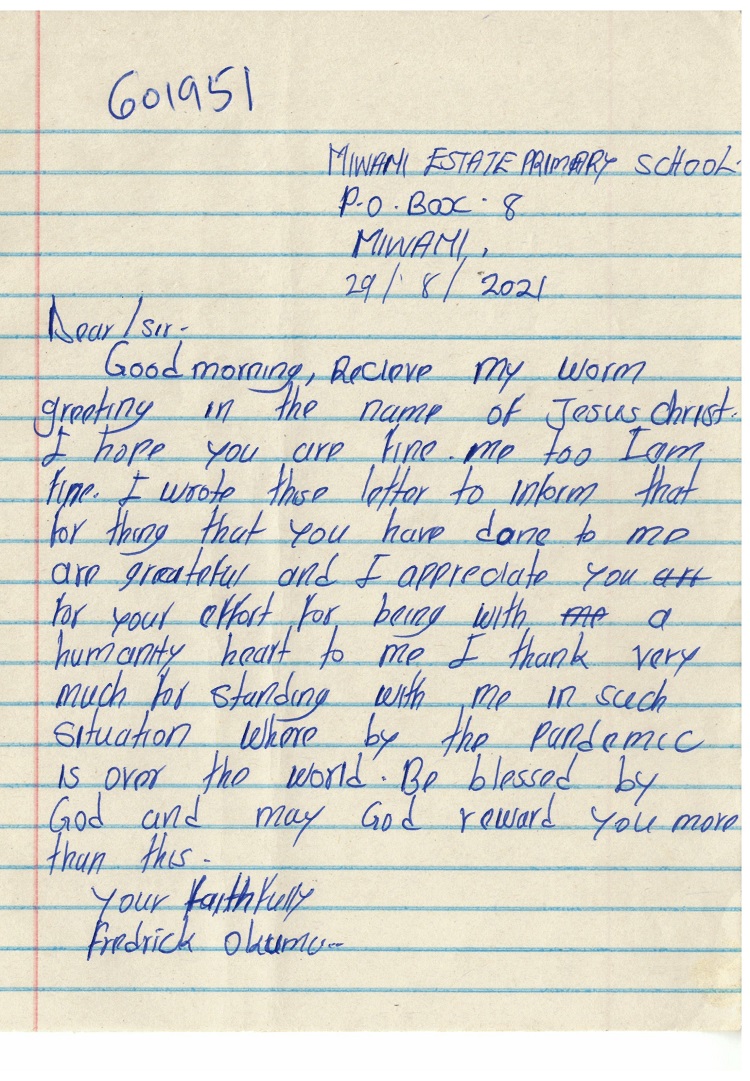 601951
MIWAMI ESTATE PRIMARY SCHOOL.
P.O.BOX.8
MIWAMI,
29/8/2021
Dear/sir-
Good morning, Recieve my worm
greeting in the name of Jesus christ.
I hope you are fine. me too I am
fine. I wrote those letter to inform that
for thing that you have done to me
are greateful and I appreciate you are
for your effort for being with me a
humanity heart to me I thank very
much for standing with me in such
situation where by the pandemic
is over the world. Be blessed by
God and may God reward you more
than this.
Your faithfully
Fredrick Okumu